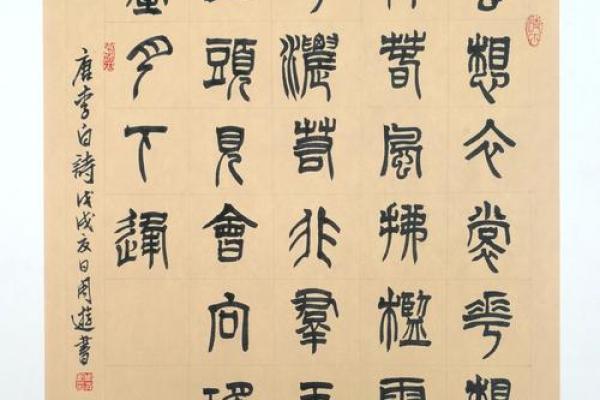 雲想衣裳花想
容春風拂檻露
華濃若非群玉
山頭見會向瑤
臺月下逢
唐李白詩戊戌夏日周遊書